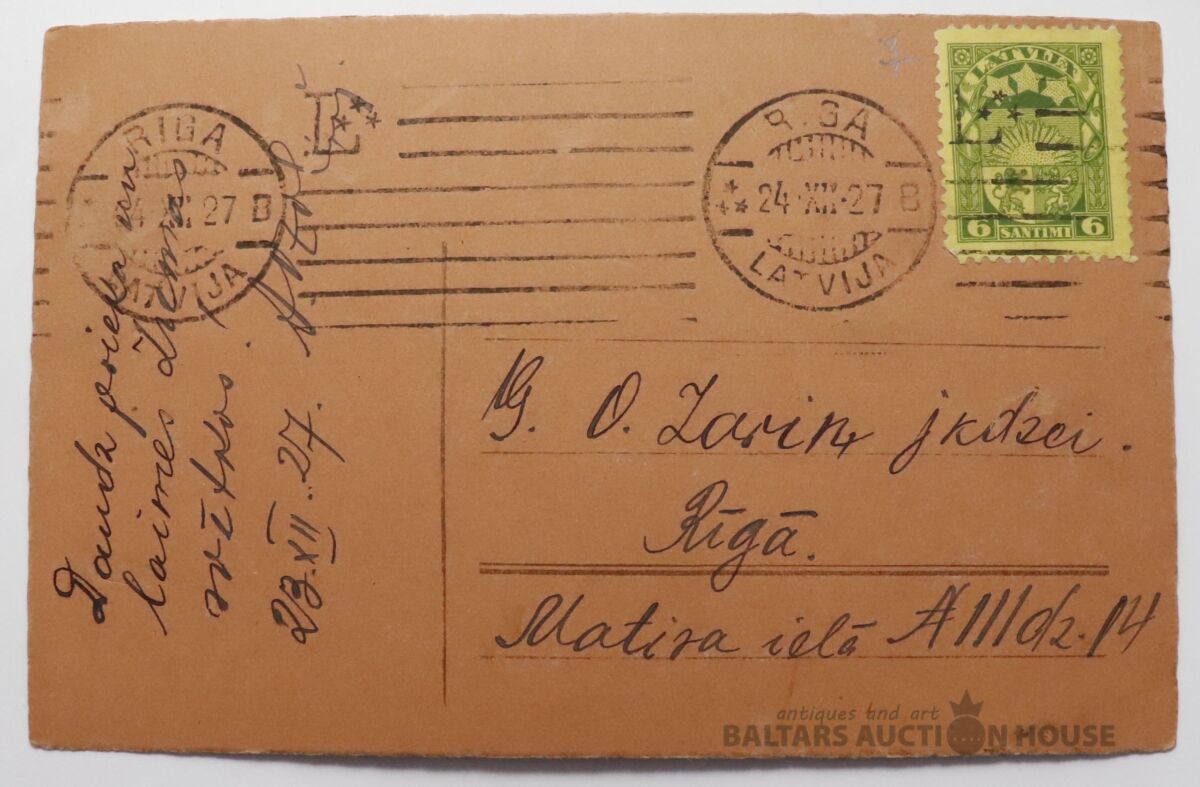 RIGA
24 XII 27 B
LATVIJA
RIGA
24 XII 27 B
LATVIJA
LATVIJA
6 SANTIMI 6
Daudz prieka un
laimes Ziemas
svētkos.
23.XII.27.
G. O. Zariņ jkdzei.
Rīgā.
Matisa ielā № 111 dz. 14
antiques and art
BALTARS AUCTION HOUSE